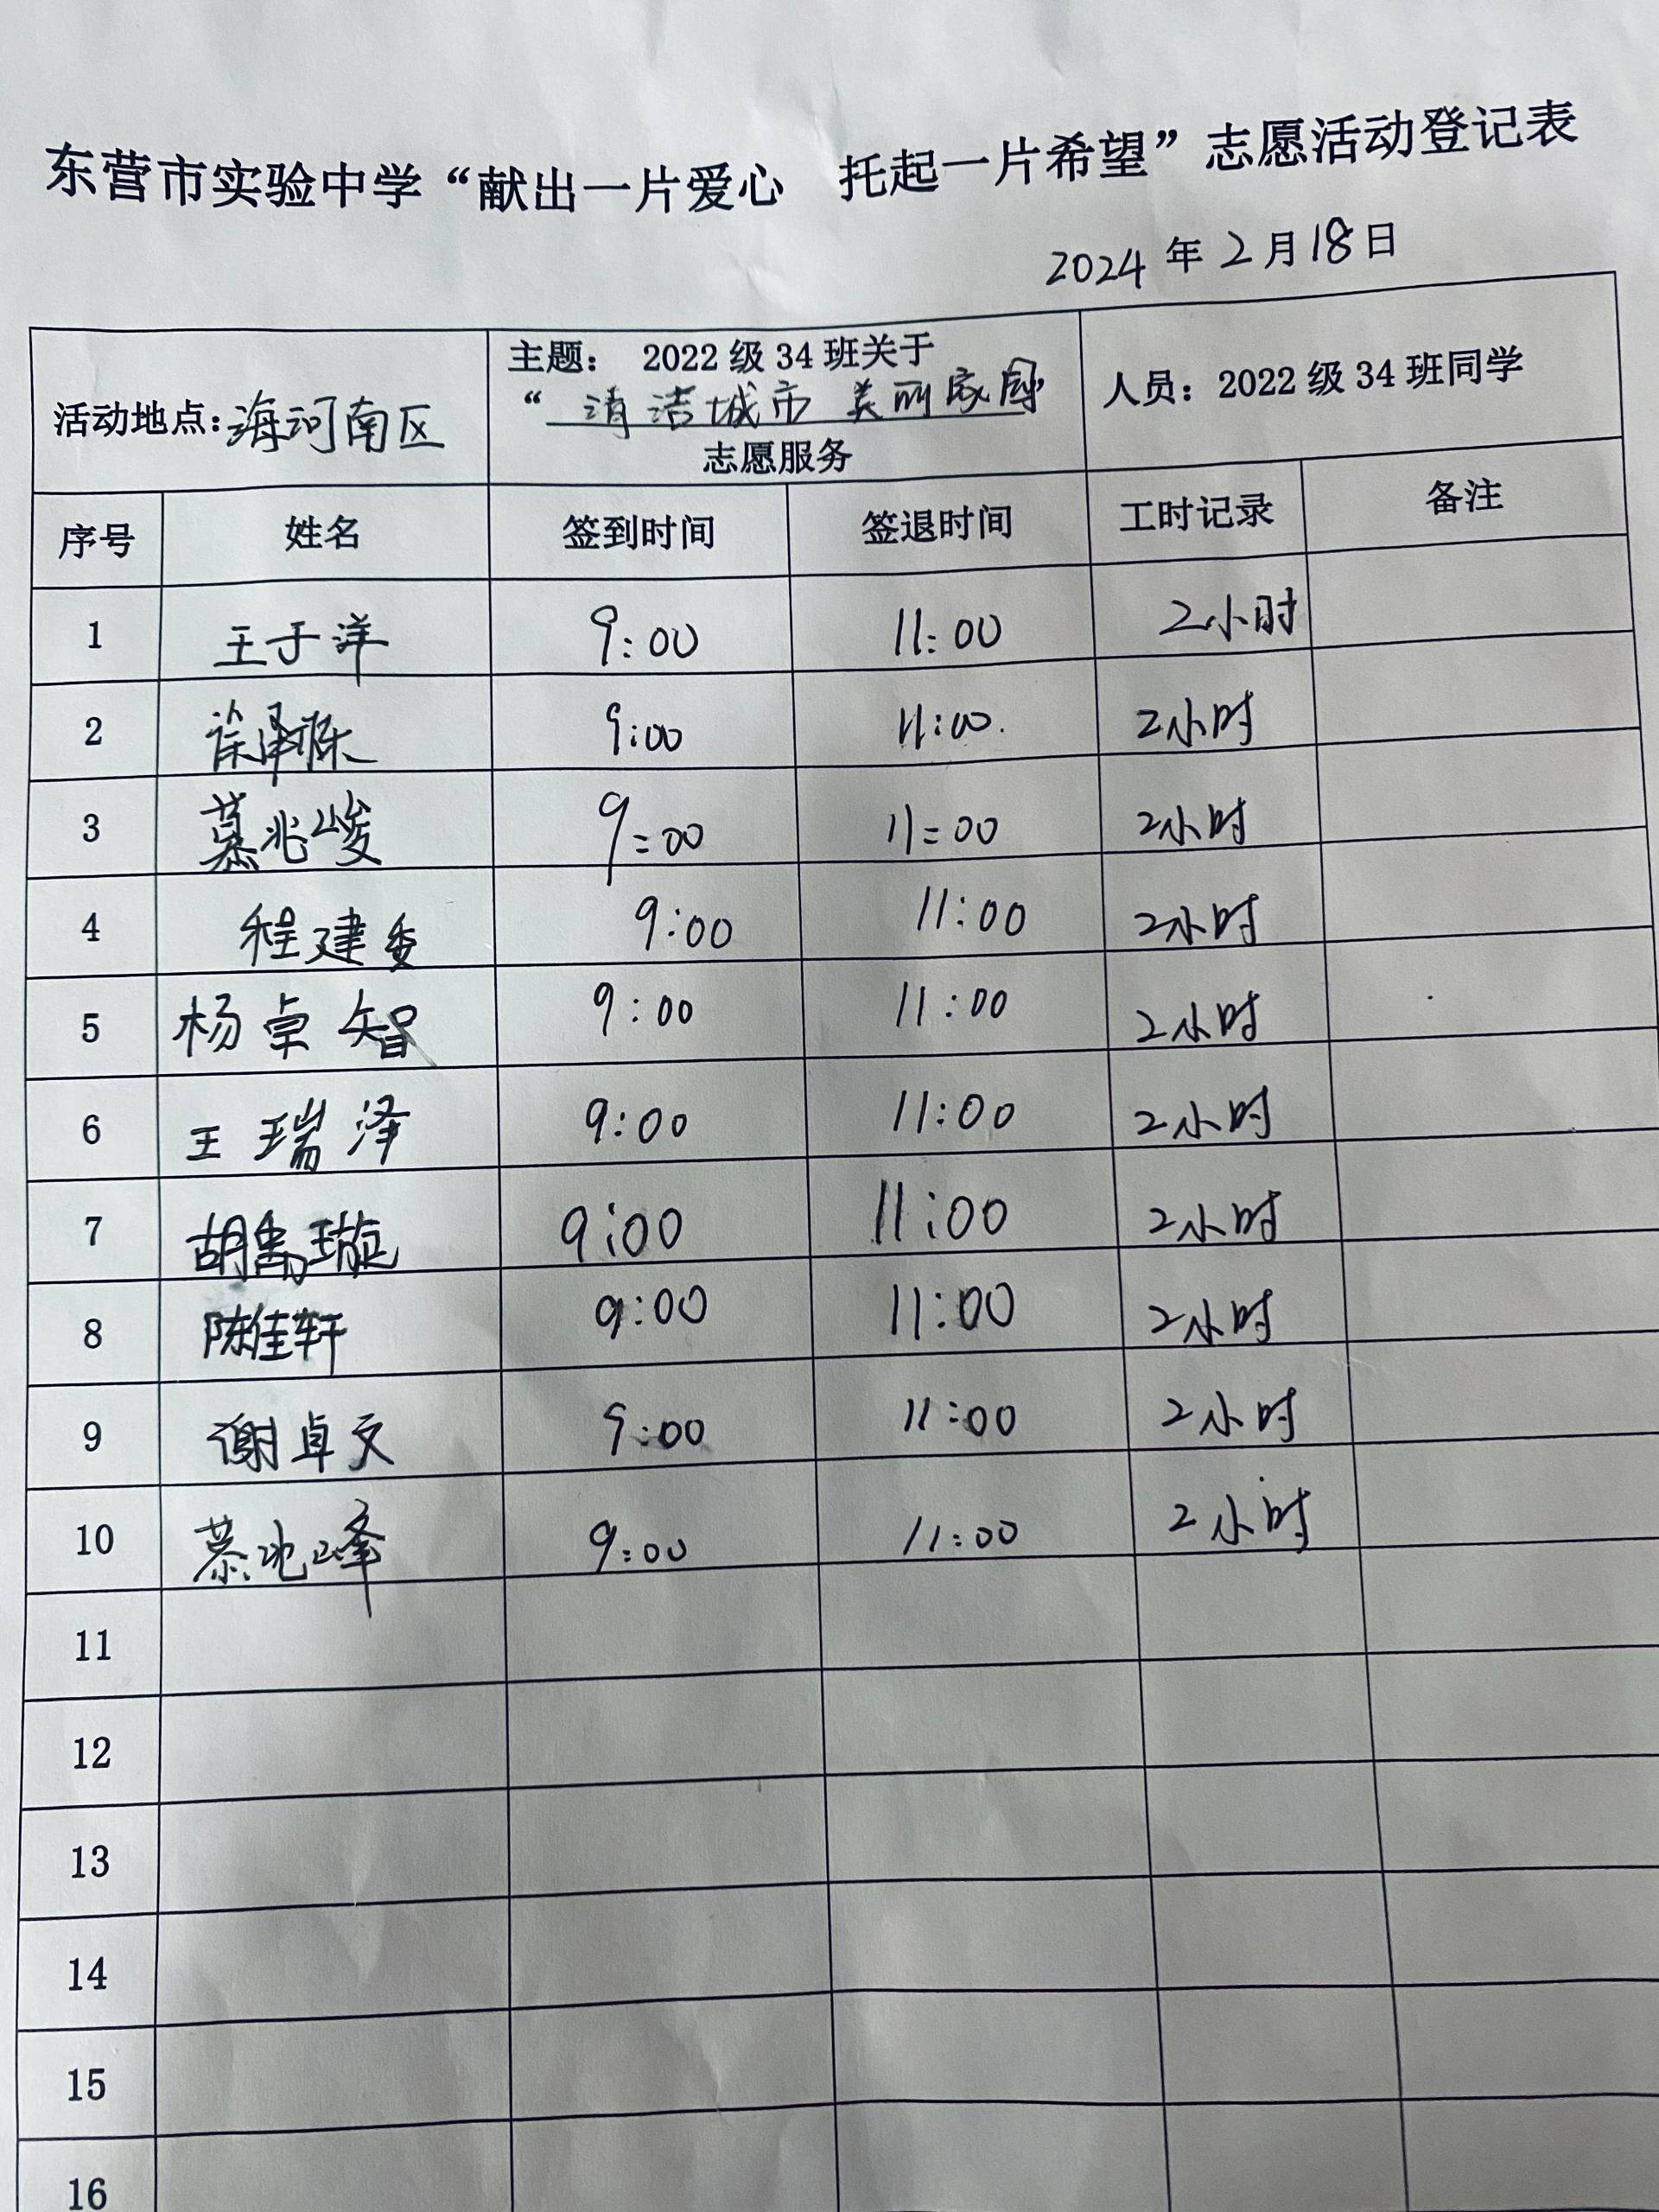 东营市实验中学“献出一片爱心 托起一片希望”志愿活动登记表
2024年2月18日
活动地点:海河南区
主题: 2022级34班关于
“清洁城市 美丽家园”
志愿服务
人员:2022级34班同学
序号 姓名 签到时间 签退时间 工时记录 备注
1 王于洋 9:00 11:00 2小时
2 9:00 11:00. 2小时
3 慕兆峻 9:00 11:00 2小时
4 程建 9:00 11:00 2小时
5 杨卓智 9:00 11:00 2小时
6 王瑞泽 9:00 11:00 2小时
7 胡禹璇 9:00 11:00 2小时
8 陈佳轩 9:00 11:00 2小时
9 谢卓文 9:00 11:00 2小时
10 慕兆峰 9:00 11:00 2小时
11
12
13
14
15
16